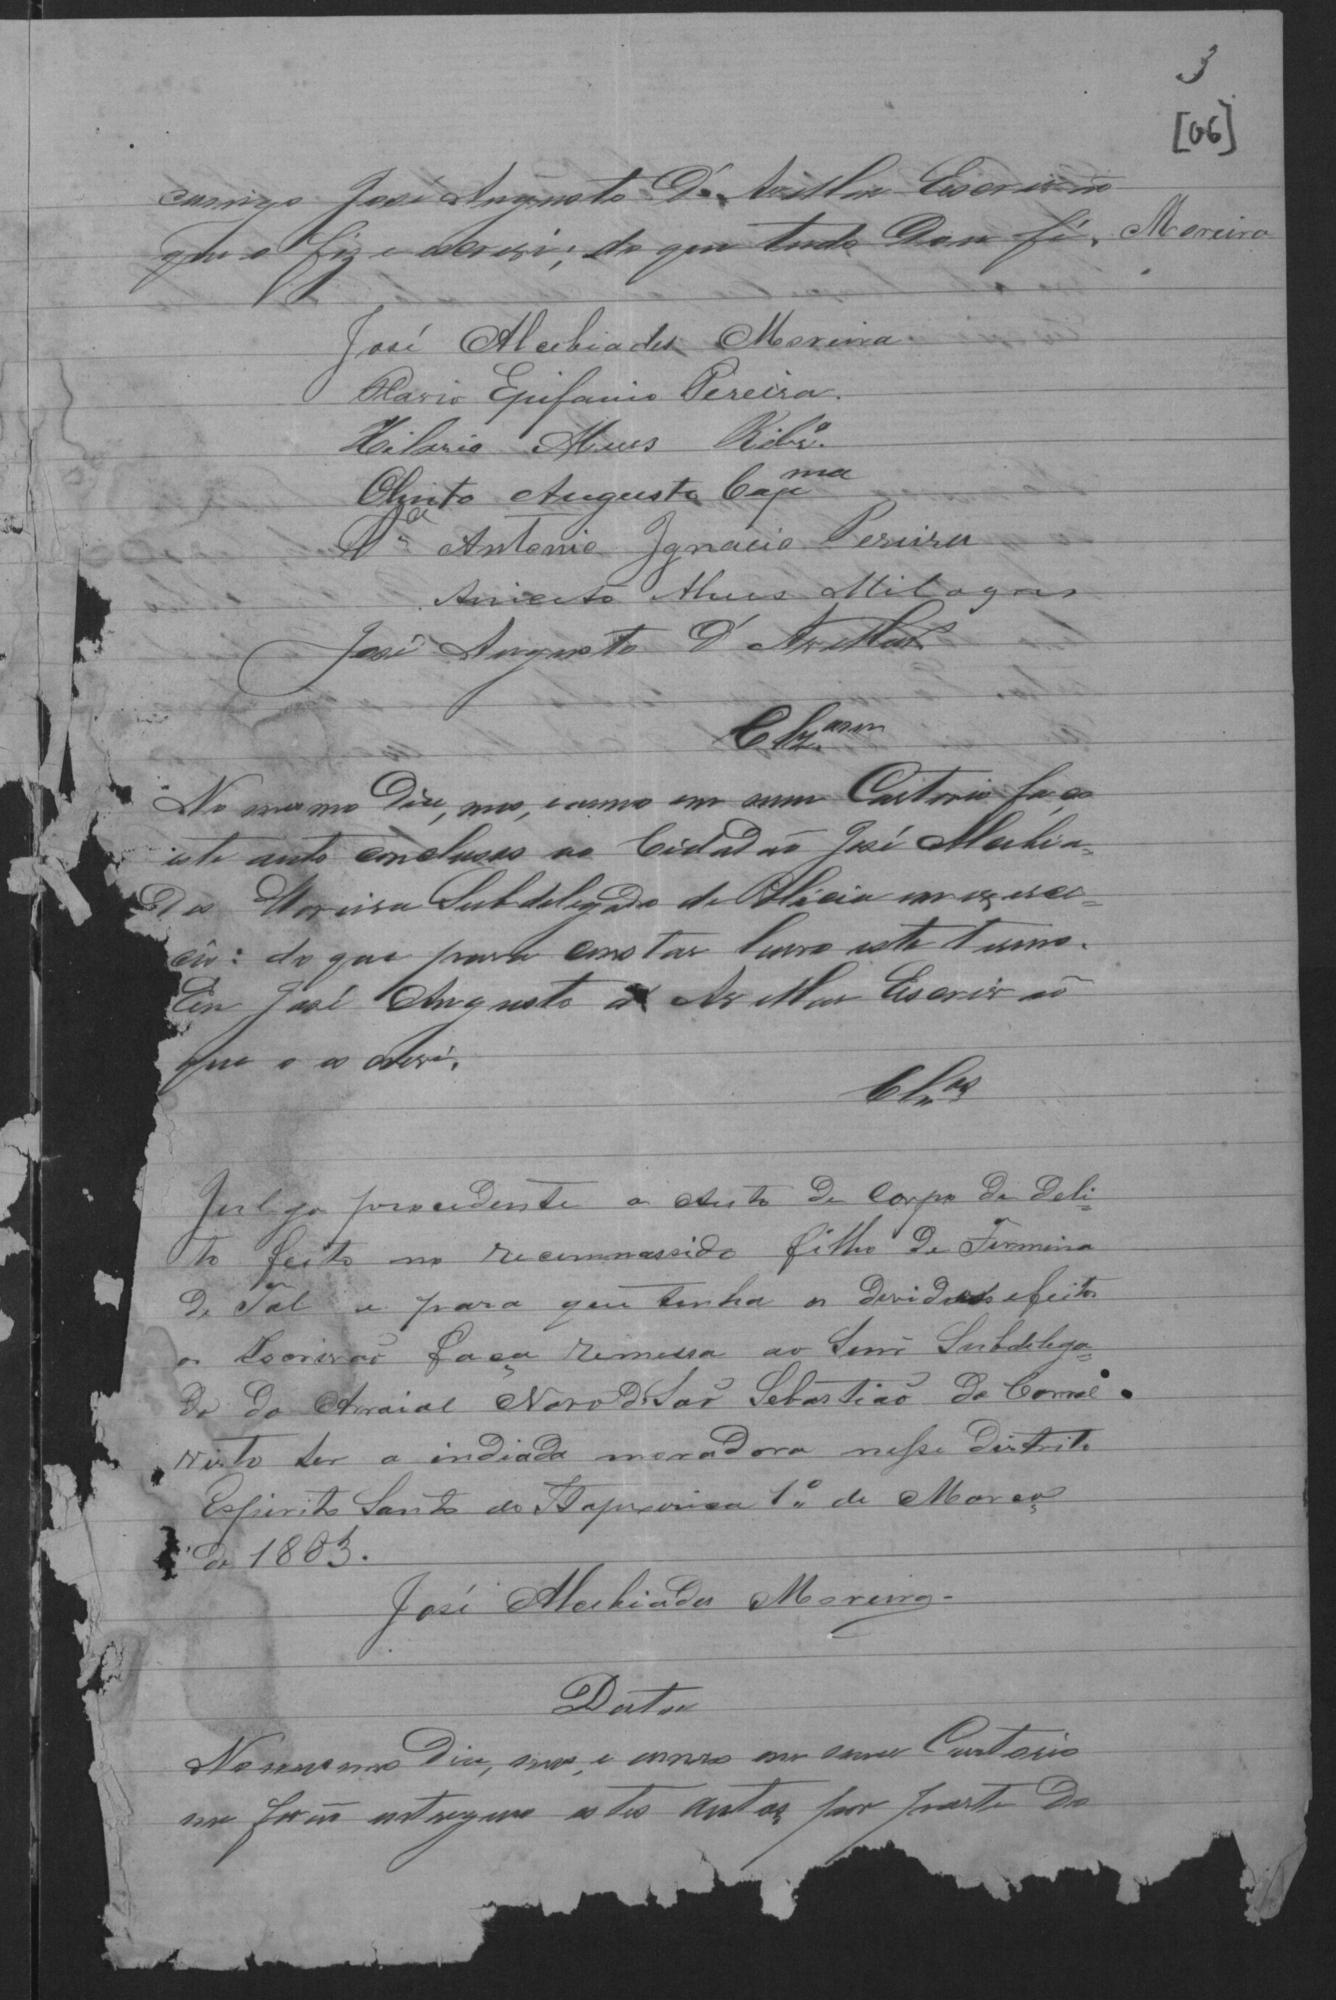 3
[06]
comigo José Augusto D'Avellar Escrivão
que o fiz e escrevi; do que tudo Dou fé. Moreira
José Alcebiades Moreira.
Flavio Epifanio Pereira.
Hilario Alves Ribrº.
Olinto Augusto
Antonio Ignacio Pereira
Aniceto Alves Milagres
José Augusto D'Avellar
Clzam
No mesmo Dia, mes, e anno em meu Cartorio faço
este auto conclusos ao Cidadaõ José Alcebia=
des Moreira Subdelegado de Policia em exerci=
cio: do que para constar lavro este termo.
Eu José Augusto d'Avellar Escrivaõ
que o escrevi.
Clos
Julgo procedente o Auto de Corpo de deli=
to feito no recemnascido filho de Firmina
de Tal e para que tenha os devidos efeitos
o Escrivaõ faça remessa ao Senr Subdelega=
do do Arraial Novo de Saõ Sebastiaõ do Corral
visto ser a indiada moradora nesse Distrito
Espirito Santo do Itapecerica 1º de Março
de 1883.
José Alcebiades Moreira
Data
No mesmo Dia, mes, e anno em meu Cartorio
me foraõ entregues estes autos por parte do